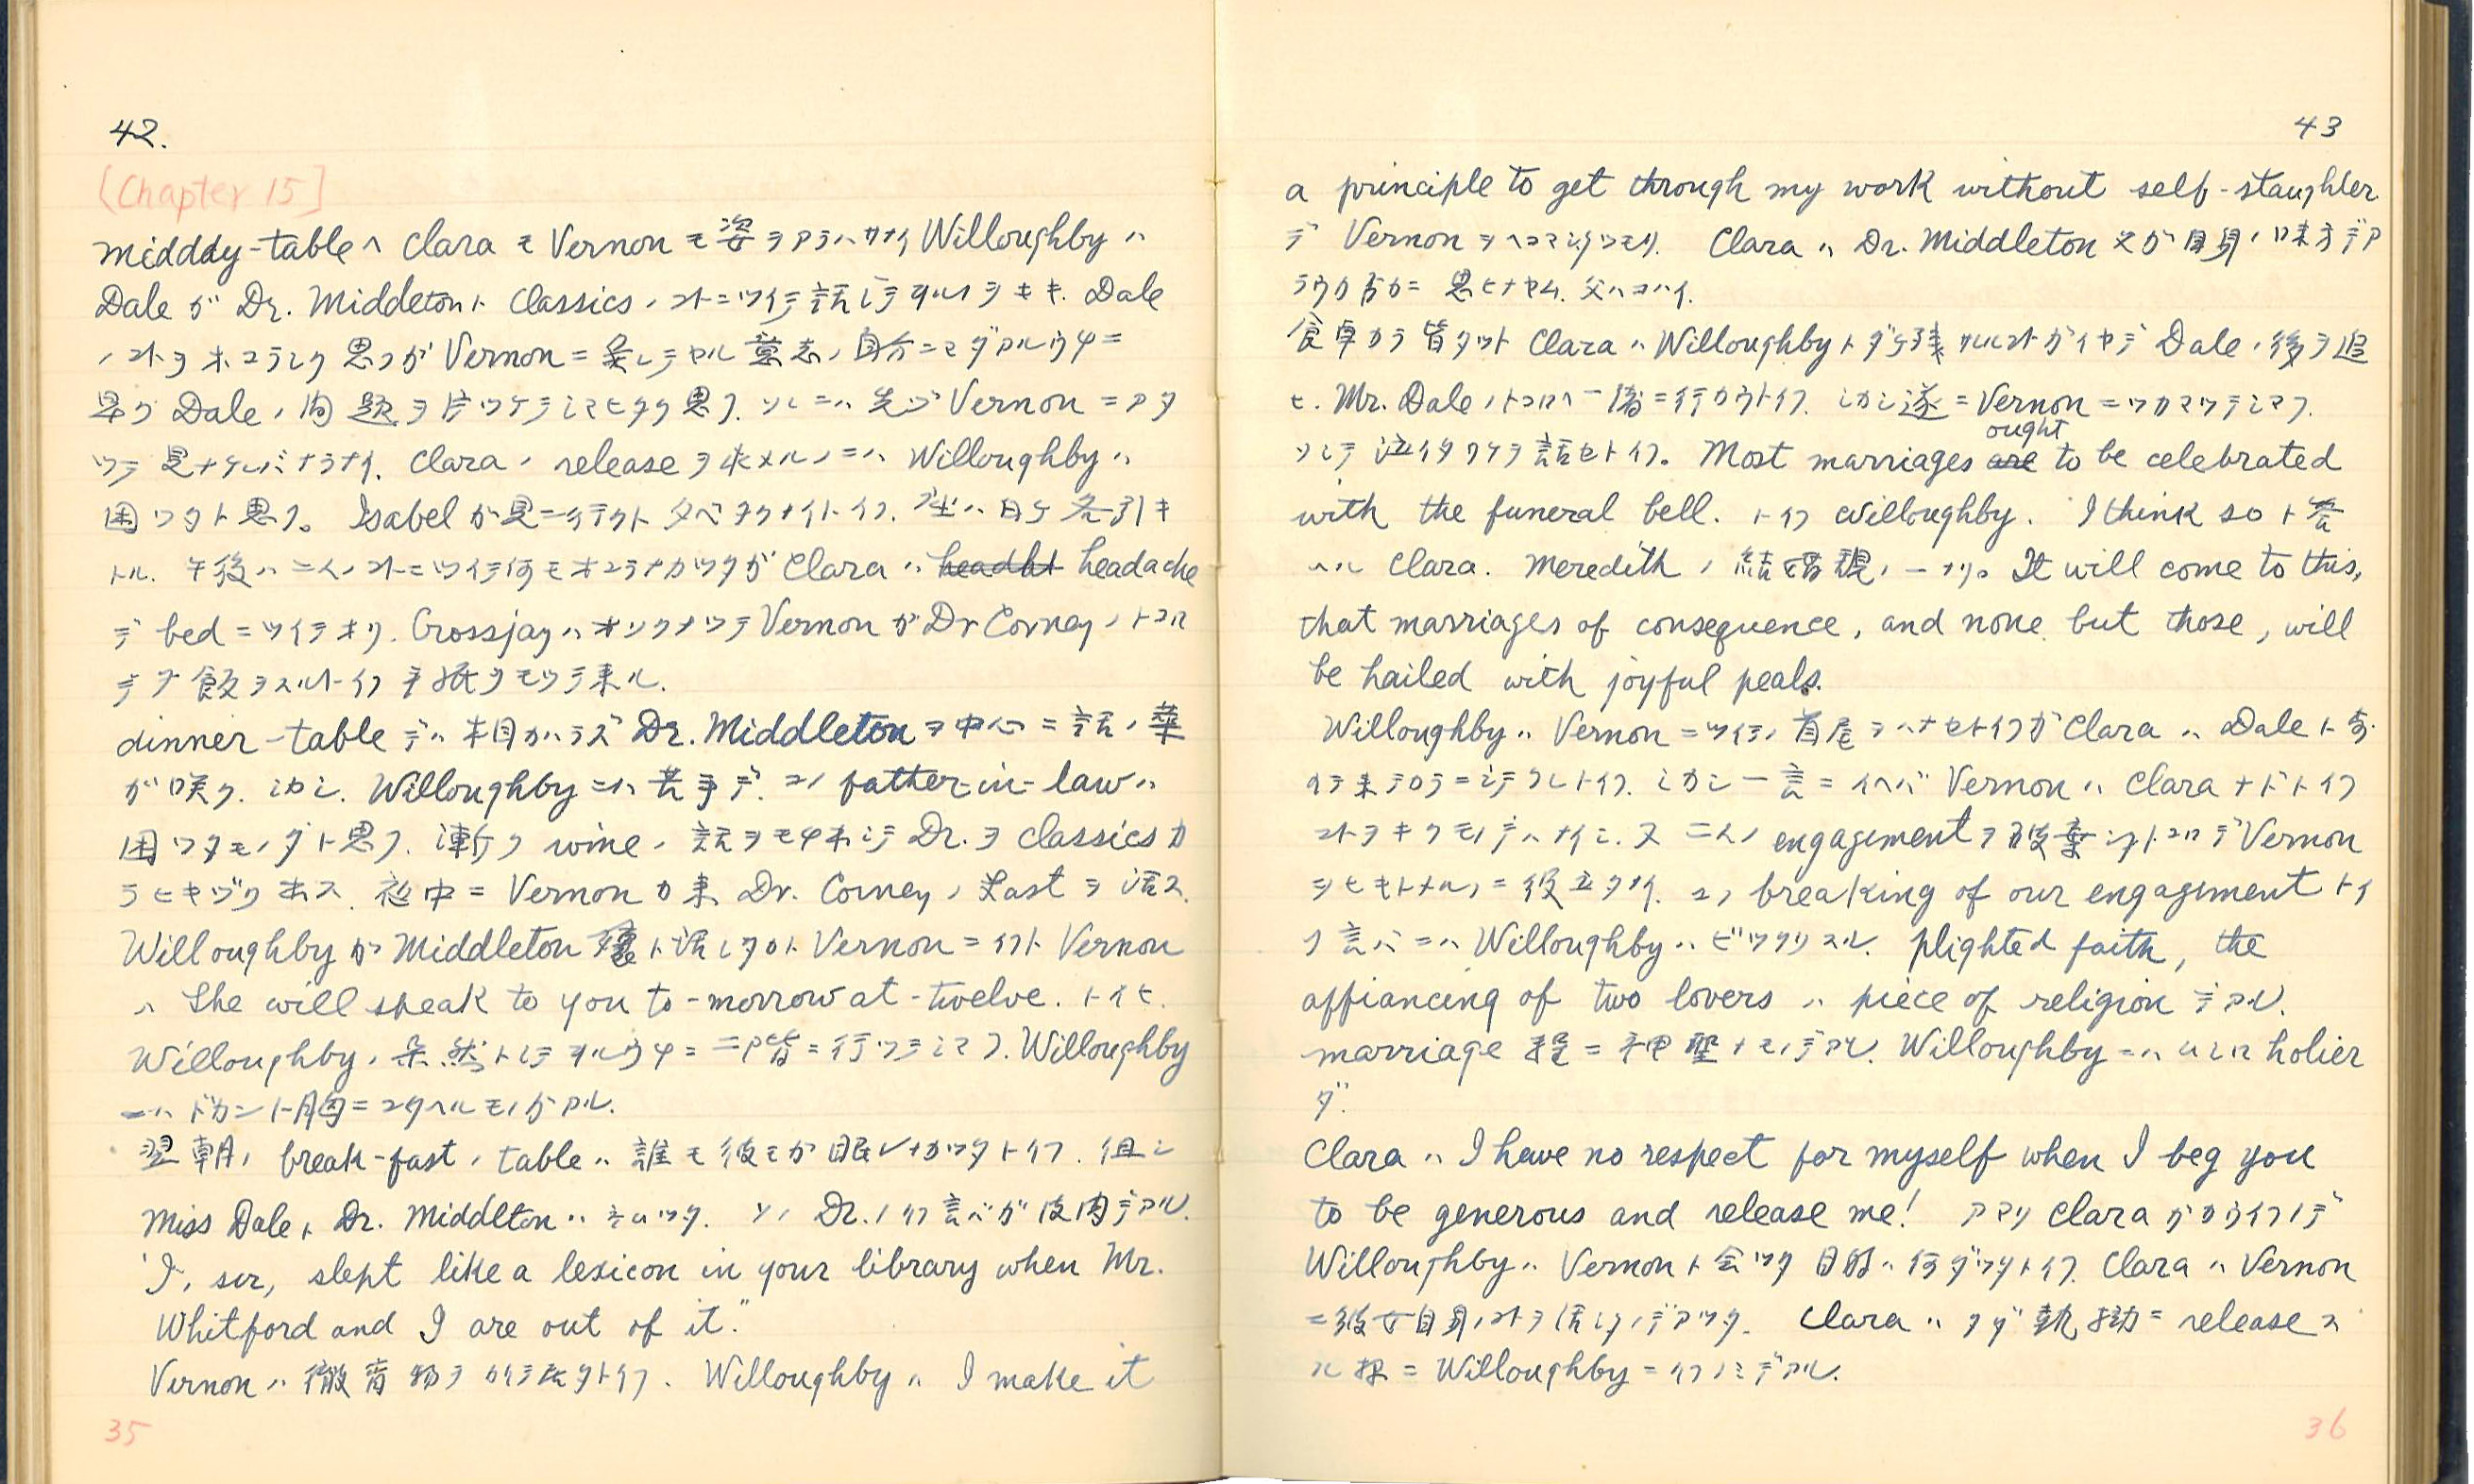 42.
[Chapter 15]
midddy-table ヘ Clara モ Vernon モ 姿ヲアラハサナイ Willoughby ハ
Dale ガ Dr. Middleton ト Classics ノコトニツイテ話シテヲルノヲキキ. Dale
ノコトヲホコラシク思フガ Vernon ニ委シテヤル意志ノ自分ニマダアルウチニ
早ク Dale ノ問題ヲ片ツケテシマヒタク思フ. ソレニハ先ヅ Vernon ニアタ
ツテ見ナケレバナラナイ. Clara ノ release ヲ求メルノニハ Willoughby ハ
困ツタト思フ。 Isabel ガ見ニ行クト夕ベタクナイトイフ. 引キ
トル. 午後ハ二人ノコトニツイテ何モオコラナカツタガ Clara ハ headht headache
デ bed ニツイテオリ. Crossjay ハオソクナツテ Vernon ガ Dr Corney ノトコロ
デ夕飯ヲスルトイフ手紙ヲモツテ来ル.
dinner-table デハ相カハラズ Dr. Middleton ヲ中心ニ話ノ華
ガ咲ク. シカシ. Willoughby ニハ苦手デ. コノ father-in-law ハ
困ツタモノダト思フ. 漸ク wine ノ話ヲモチ出シテ Dr. ヲ Classics カ
ラヒキヅリ出ス. 途中ニ Vernon ガ来 Dr. Corney ノ Last ヲ話ス.
Willoughby ガ Middleton 嬢ト話シタカト Vernon ニイフト Vernon
ハ She will speak to you to-morrow at-twelve. トイヒ.
Willoughby ノ呆然トシテヲルウチニ二階ニ行ツテシマフ. Willoughby
ニハドカント胸ニコタヘルモノガアル.
翌朝ノ break-fast ノ table ハ誰モ彼モガ眠レナカツタトイフ. 但シ
Miss Dale ト Dr. Middlton ハネムツタ. ソノ Dr. ノイフ言バガ皮肉デアル.
'I, sir, slept like a lexicon in your library when Mr.
Whitford and I are out of it."
Vernon ハ徹宵物ヲカイテ居タトイフ. Willoughby ハ I make it
35
43
a principle to get through my work without self-slaughter
デ Vernon ヲヘコマシタツモリ. Clara ハ Dr. Middleton 父ガ自身ノ味方デア
ラウカ否カニ思ヒナヤム. 父ハコハイ.
食卓カラ皆タツト Clara ハ Willoughby トダケ残サルルコトガイヤデ Dale ノ後ヲ追
ヒ. Mr. Dale ノトコロヘ一緒ニ行カウトイフ. シカシ遂ニ Vernon ニツカマツテシマフ.
ソシテ泣イタワケヲ話セトイフ。 Most marriages are ought to be celebrated
with the funeral bell. トイフ Willoughby. I think so ト答
ヘル Clara. Meredith ノ結婚観ノ一ナリ。 It will come to this,
that marriages of consequence, and none but those, will
be hailed with joyful peals.
Willoughby ハ Vernon ニツイテノ首尾ヲハナセトイフガ Clara ハ Dale ト
イテ来テカラニシテクレトイフ. シカシ一言ニイヘバ Vernon ハ Clara ナドトイフ
コトヲキクモノデハナイシ. 又二人ノ engagement ヲ破棄シタトコロデ Vernon
ヲヒキトメルノニ役立タナイ. コノ breaking of our engagement トイ
フ言バニハ Willoughby ハビツクリスル. plighted faith, the
affiancing of two lovers ハ piece of religion デアル.
marriage 程ニ神聖ナモノデアル. Willoughby ニハムシロ holier
ダ.
Clara ハ I have no respect for myself when I beg you
to be generous and release me! アマリ Clara ガカウイフノデ
Willoughby ハ Vernon ト会ツタ目的ハ何ダツタトイフ. Clara ハ Vernon
ニ彼女自身ノコトヲ話シタノデアツタ. Clara ハタダ執拗ニ release ス
ル様ニ Willoughby ニイフノミデアル.
36